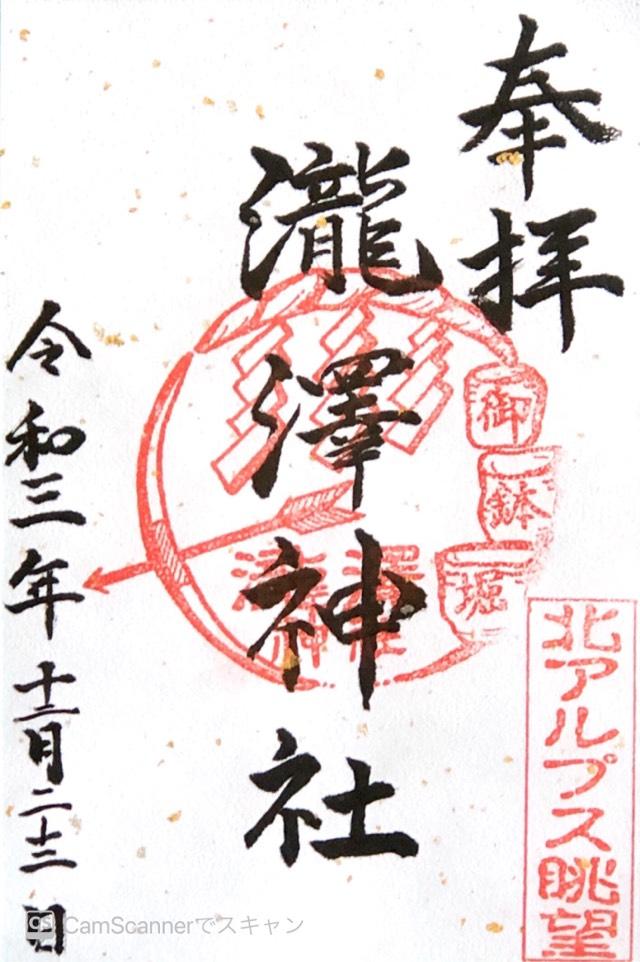 奉拝
瀧澤神社
令和三年十二月二十三日
御鉢堀
北アルプス眺望
瀧澤神社
CS CamScannerでスキャン